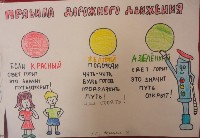 ПРАВИЛА ДОРОЖНОГО ДВИЖЕНИЯ
ЕСЛИ КРАСНЫЙ
СВЕТ ГОРИТ
ЭТО ЗНАЧИТ
ПУТЬ ЗАКРЫТ!
ЖЁЛТЫЙ
ПОДОЖДИ
ЧУТЬ-ЧУТЬ
БУДЬ ГОТОВ
ПРОДОЛЖИТЬ
ПУТЬ!
А ЗЕЛЁНЫЙ
СВЕТ ГОРИТ
ЭТО ЗНАЧИТ
ПУТЬ
ОТКРЫТ!